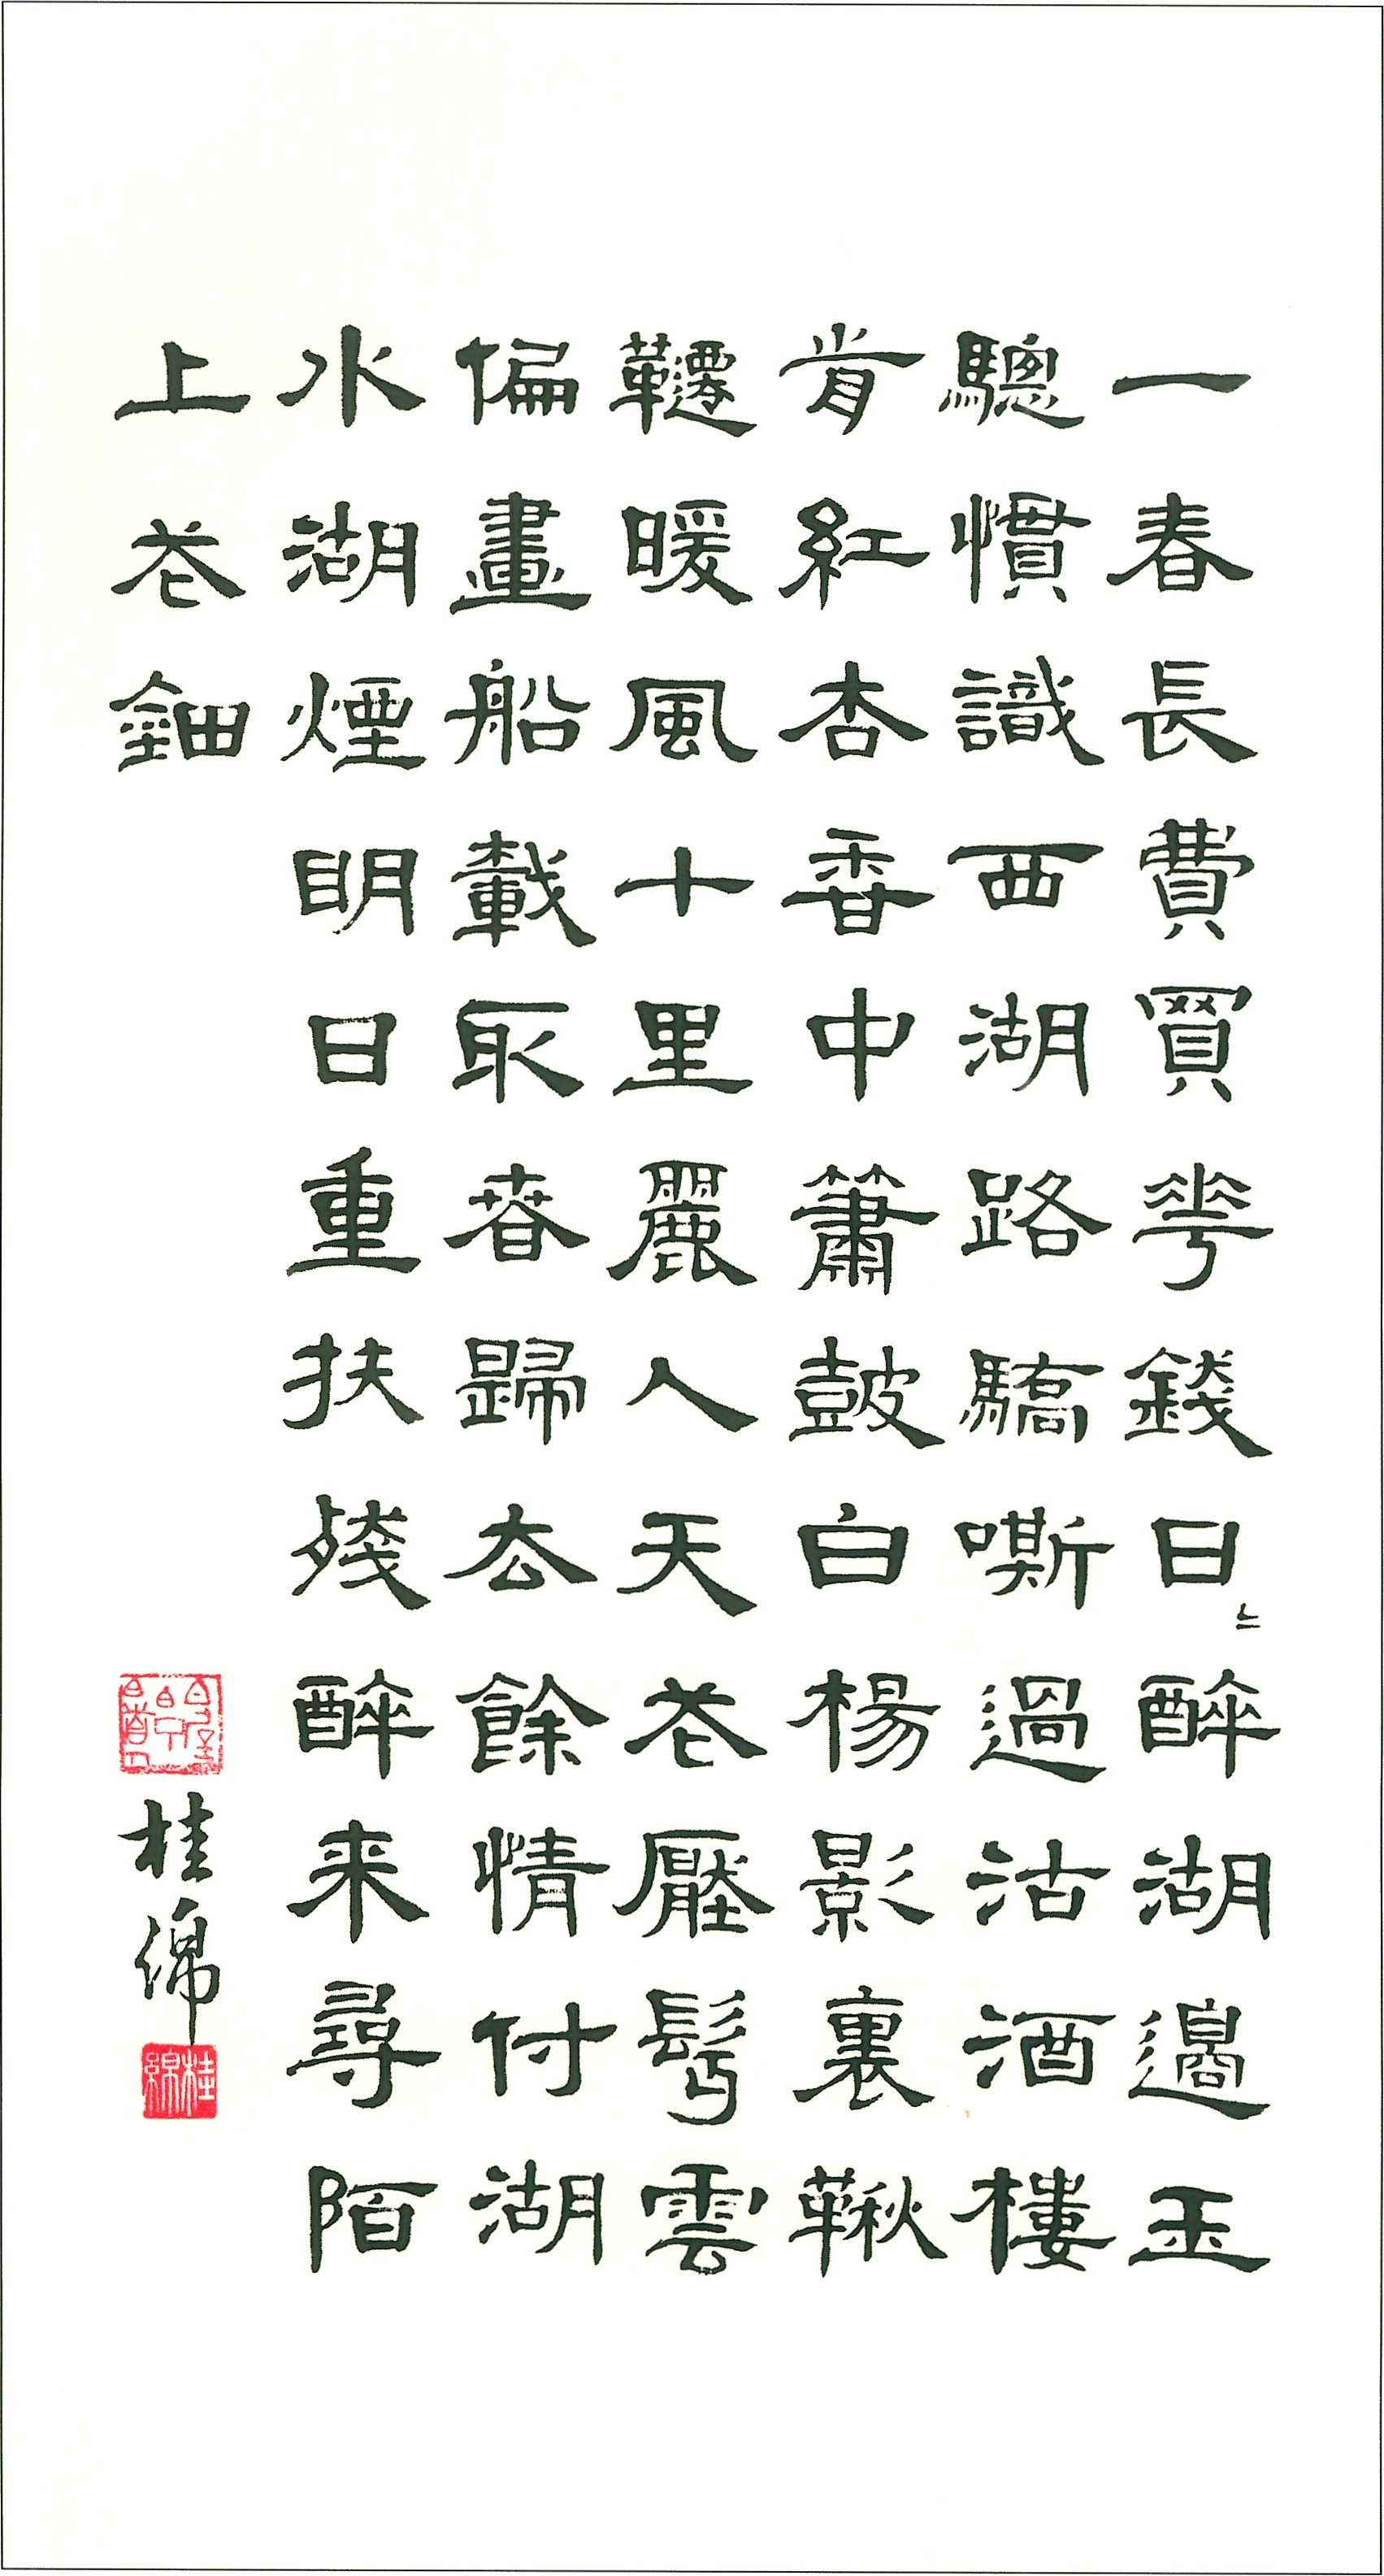 一春長費買華錢日〻醉湖邊玉
驄慣識西湖路驕嘶過沽酒樓
前紅杏香中簫鼓白楊影裏鞦
韆暖風十里麗人天花壓髩雲
偏畫船載取春歸去餘情付湖
水湖煙明日重扶殘醉来尋陌
上花鈿
桂綿
桂綿